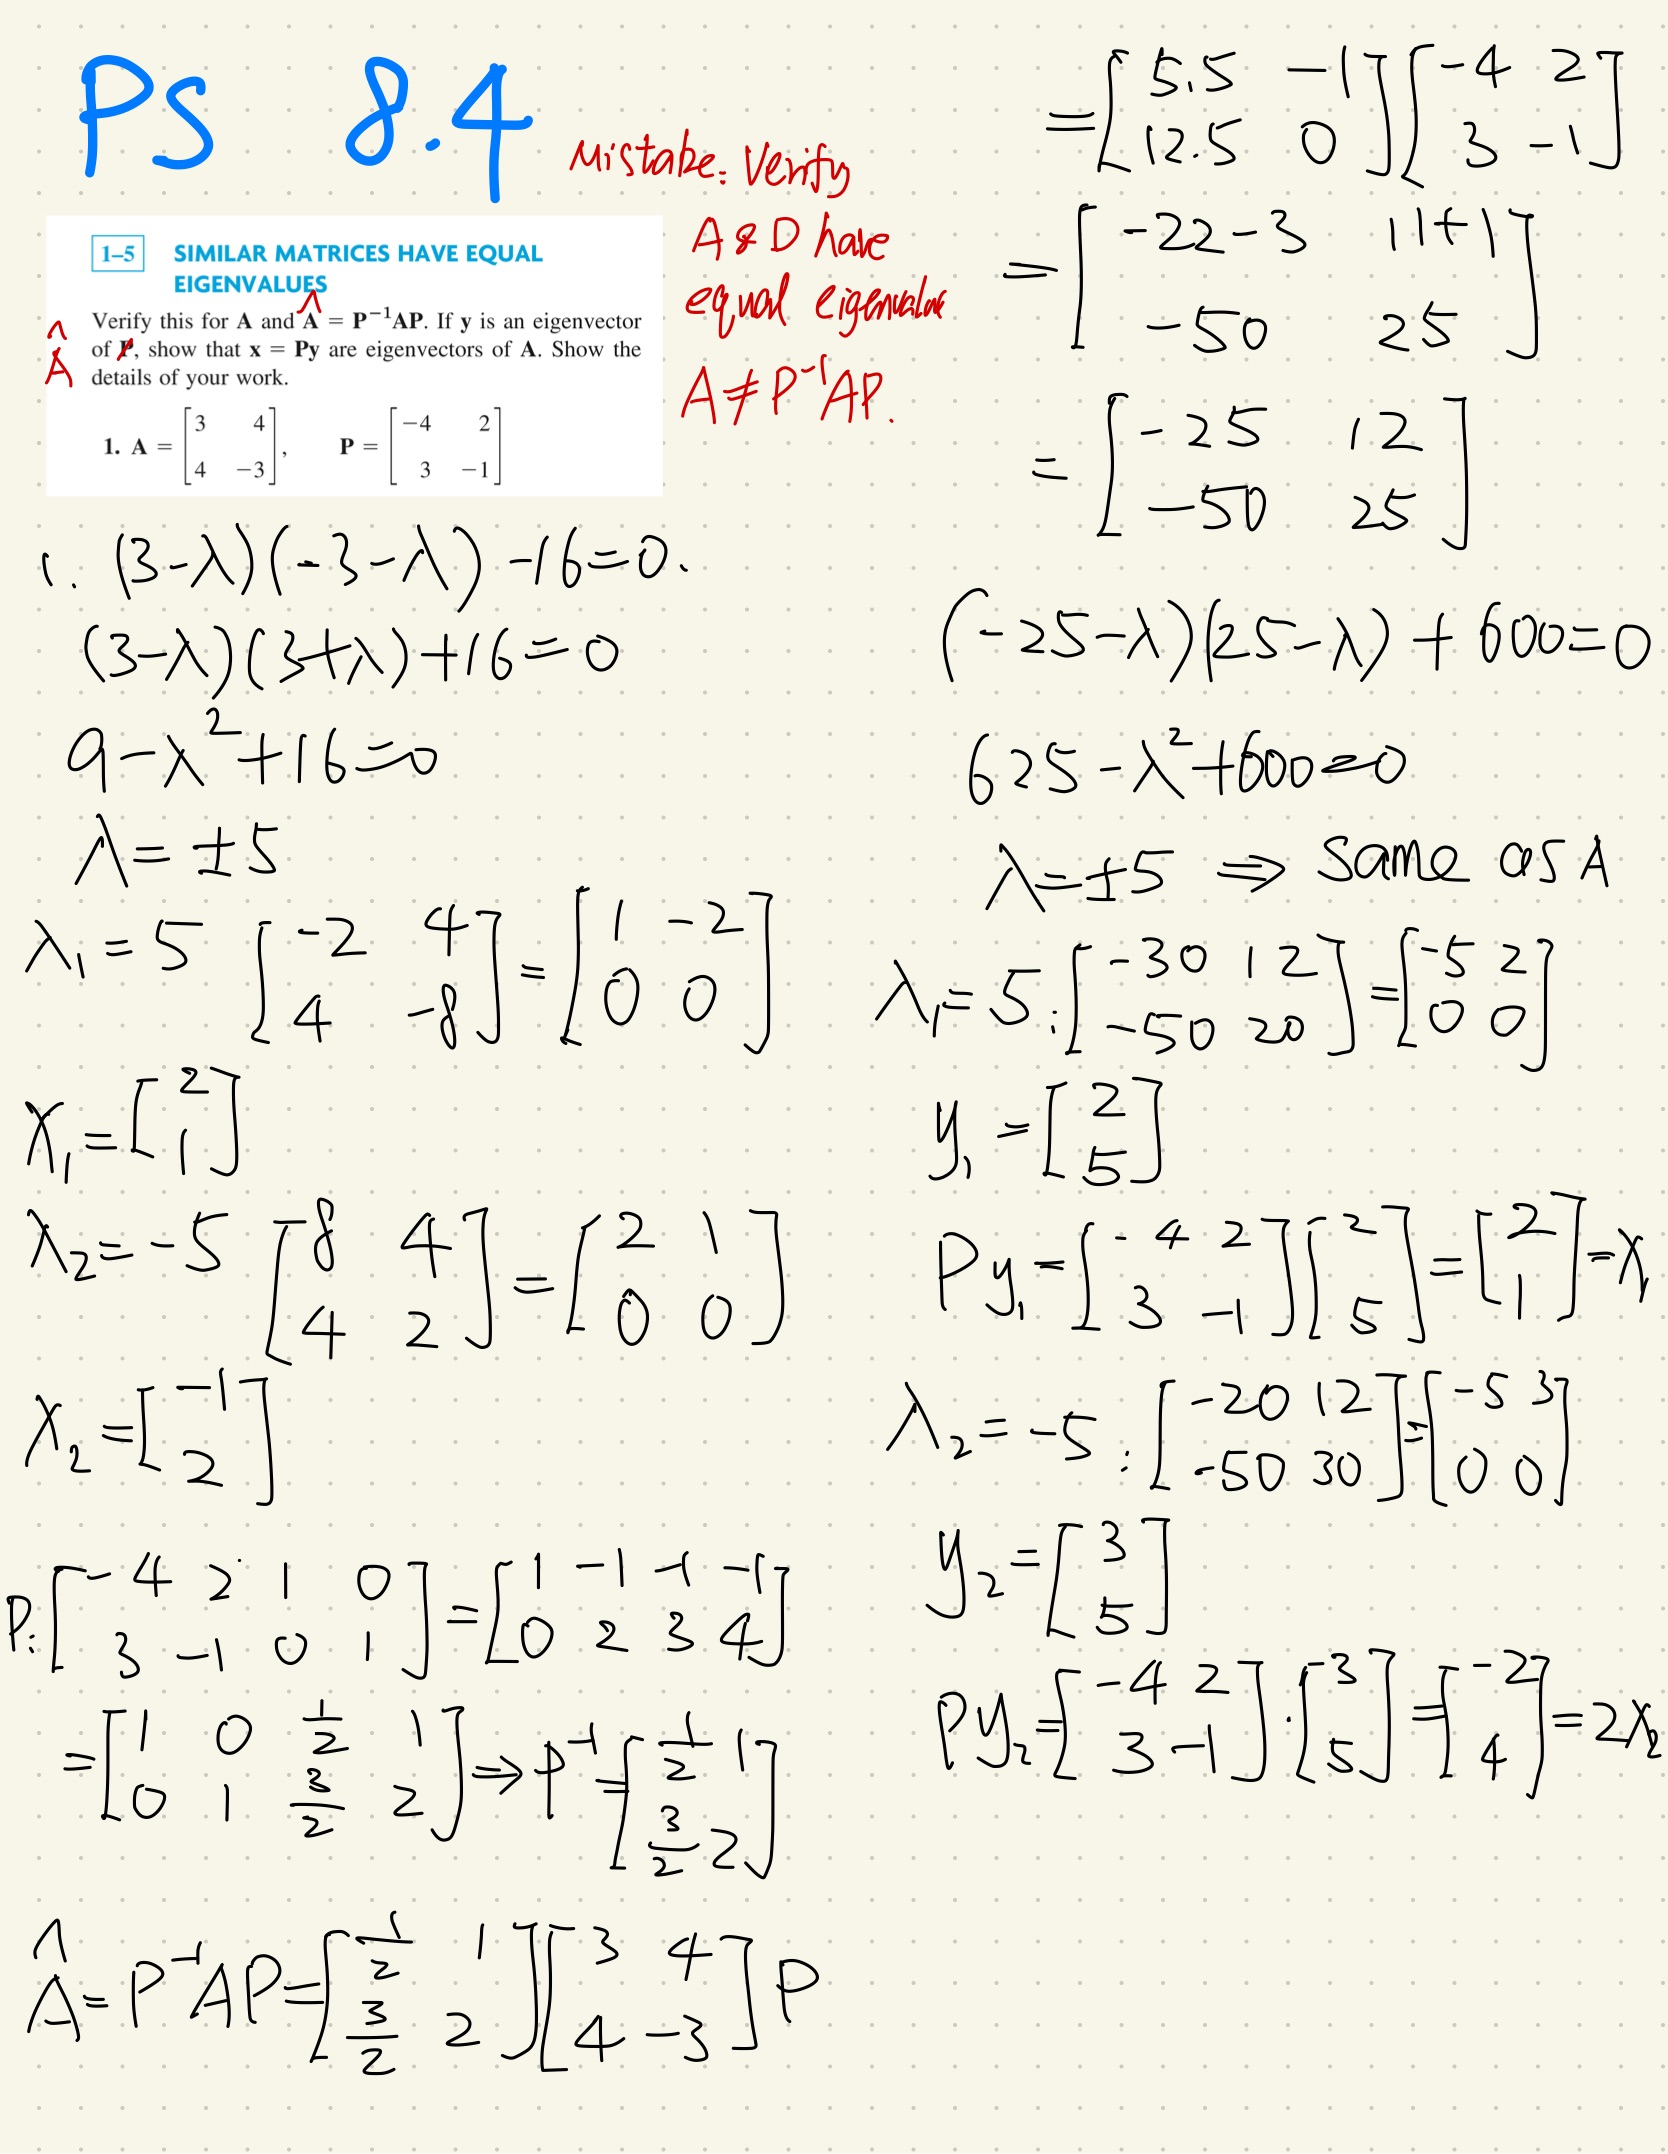 PS 8.4
Mistake: Verify
A & D have
equal eigenvalue
A ≠ P⁻¹AP.
1–5 SIMILAR MATRICES HAVE EQUAL
EIGENVALUES
Verify this for A and Â = P⁻¹AP. If y is an eigenvector
of P, show that x = Py are eigenvectors of A. Show the
details of your work.
Â
1. A = [3 4; 4 −3], P = [−4 2; 3 −1]
1. (3-λ)(-3-λ) -16=0.
(3-λ)(3+λ)+16=0
9-λ²+16=0
λ = ±5
λ₁ = 5 [-2 4; 4 -8] = [1 -2; 0 0]
X₁ = [2; 1]
λ₂ = -5 [8 4; 4 2] = [2 1; 0 0]
X₂ = [-1; 2]
P: [-4 2 1 0; 3 -1 0 1] = [1 -1 -1 -1; 0 2 3 4]
= [1 0 1/2 1; 0 1 3/2 2] ⇒ P⁻¹ = [1/2 1; 3/2 2]
Â = P⁻¹AP = [1/2 1; 3/2 2] [3 4; 4 -3] P
= [5.5 -1; 12.5 0] [-4 2; 3 -1]
= [-22-3 11+1; -50 25]
= [-25 12; -50 25]
(-25-λ)(25-λ) + 600=0
625-λ²+600=0
λ=±5 ⇒ same as A
λ₁= 5: [-30 12; -50 20] = [-5 2; 0 0]
y₁ = [2; 5]
Py₁ = [-4 2; 3 -1] [2; 5] = [2; 1] = X₁
λ₂ = -5: [-20 12; -50 30] = [-5 3; 0 0]
y₂ = [3; 5]
Py₂ = [-4 2; 3 -1] · [3; 5] = [-2; 4] = 2X₂